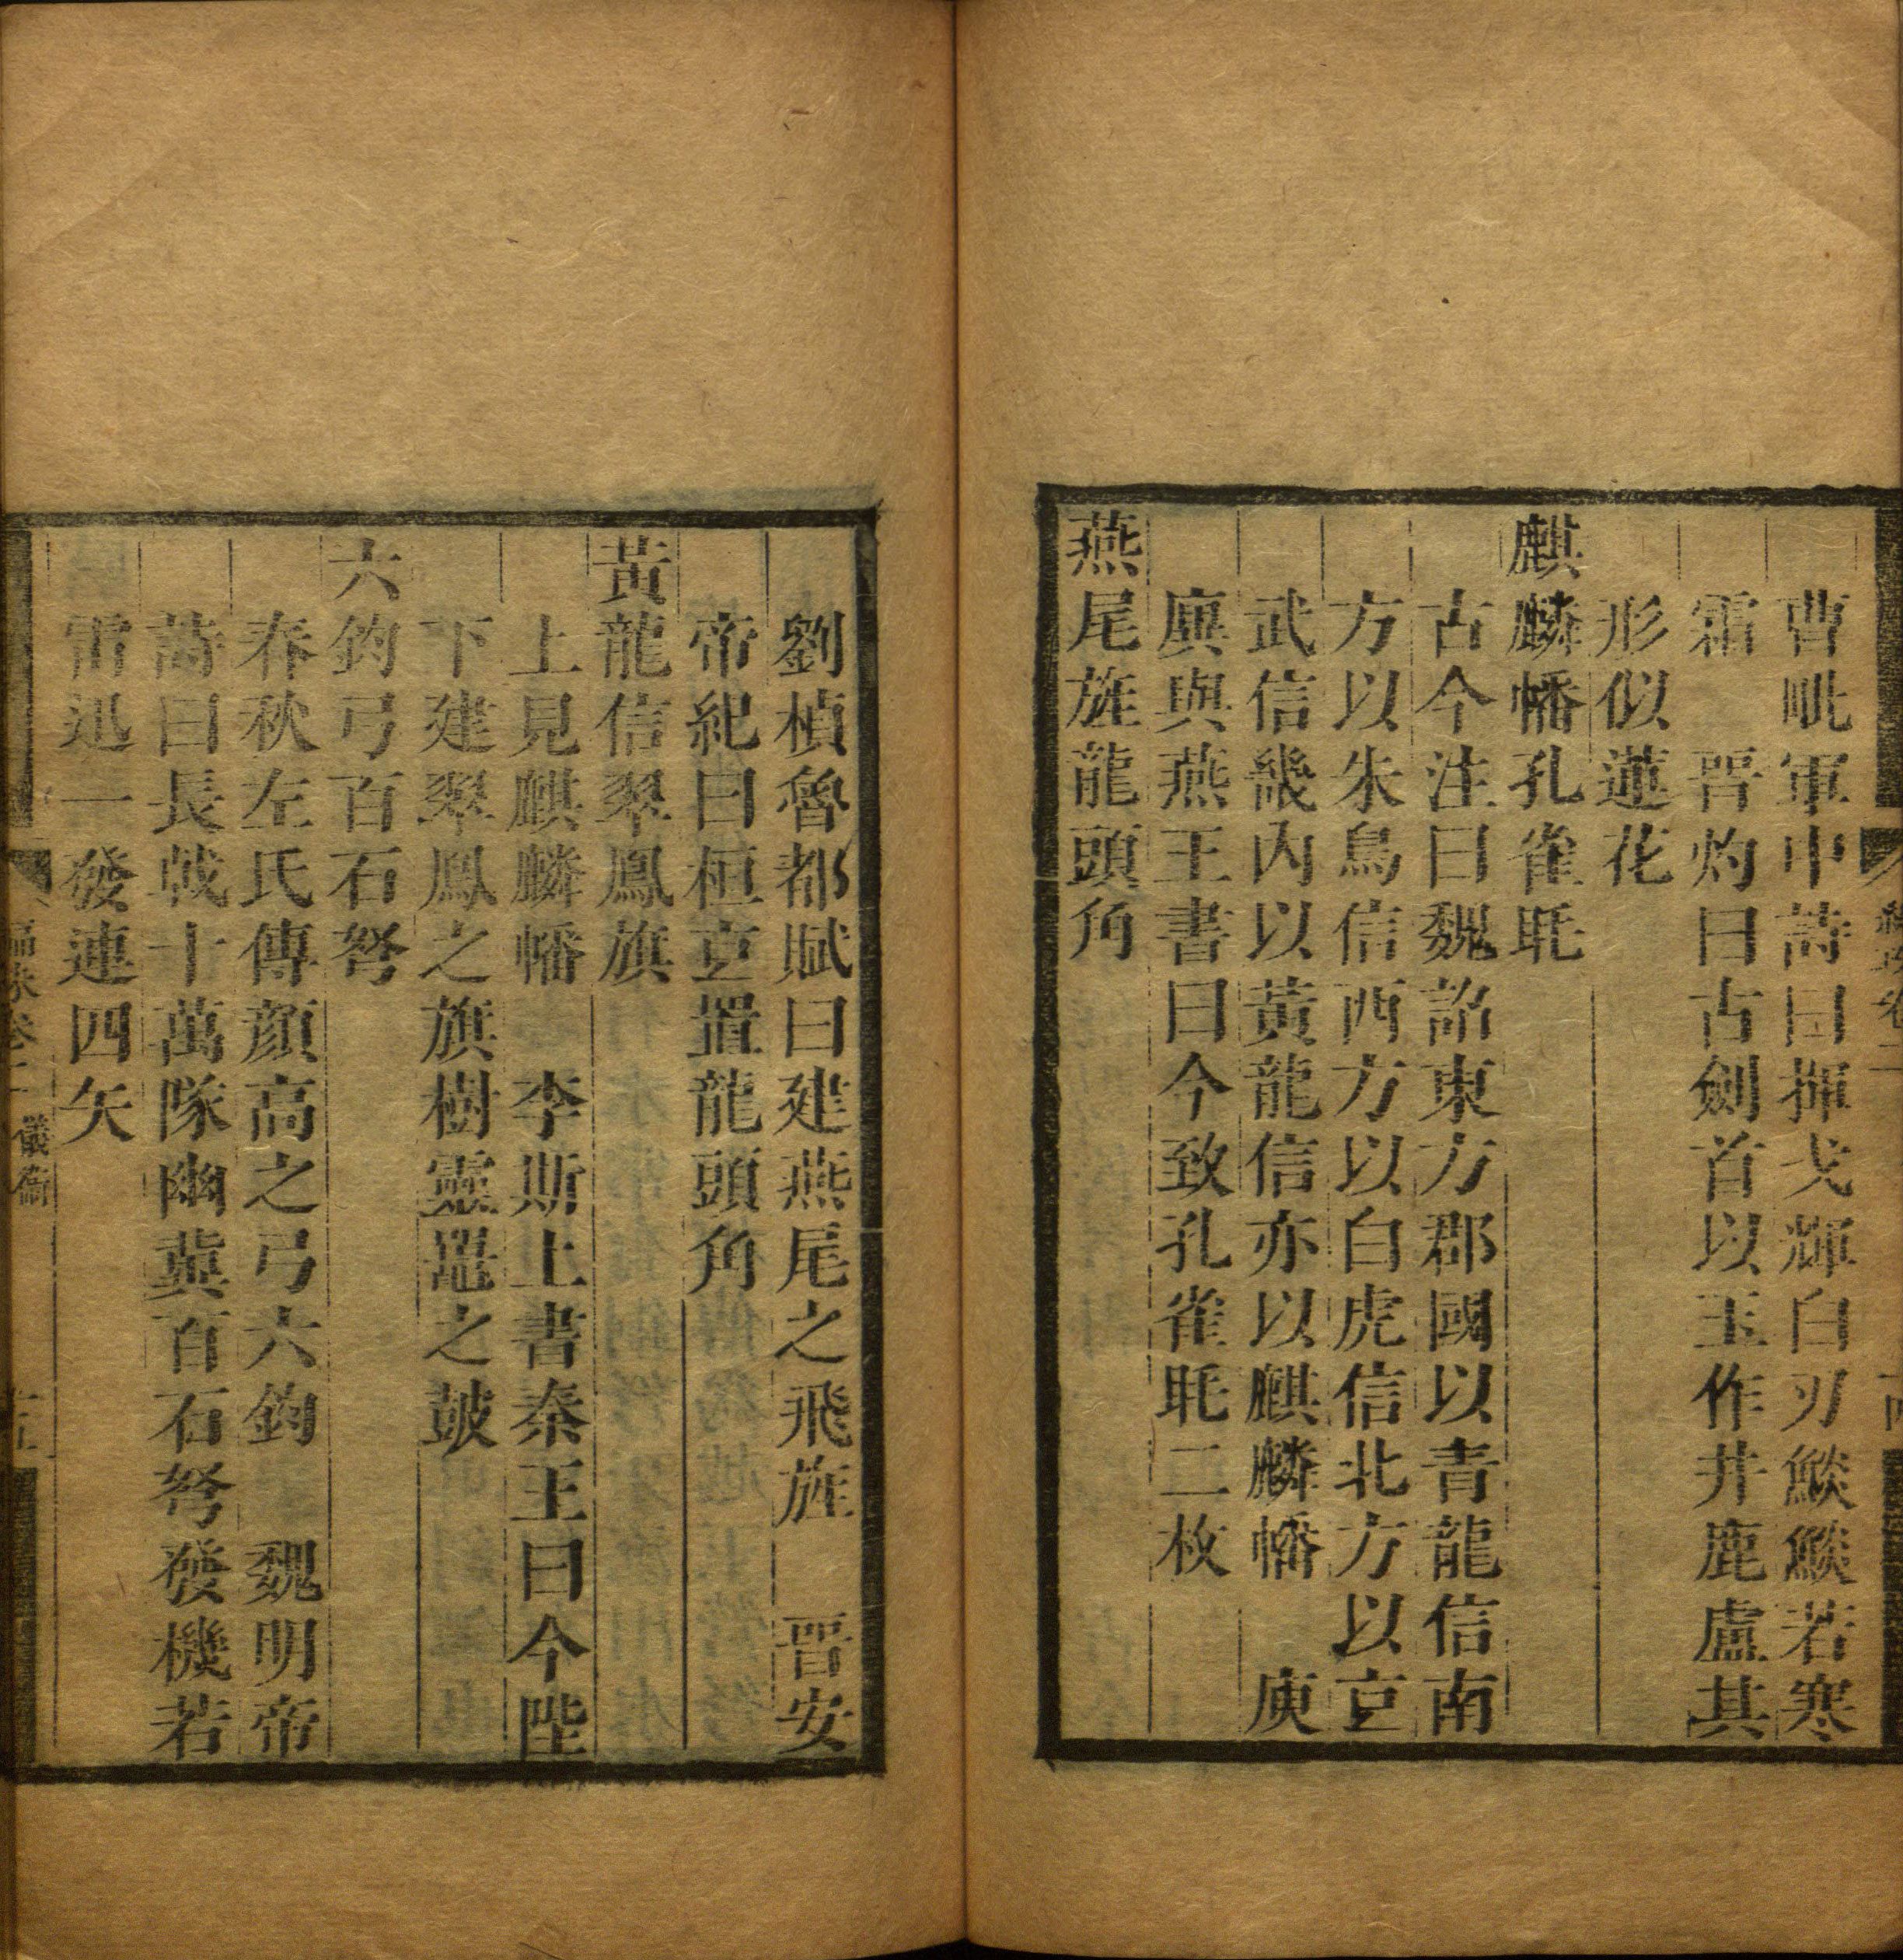 曹毗軍中詩曰揮戈輝白刃燄燄若寒
霜　晋灼曰古劍首以玉作井鹿盧其
形似蓮花
麒麟幡孔雀毦
古今注曰魏詔東方郡國以青龍信南
方以朱鳥信西方以白虎信北方以玄
武信畿内以黃龍信亦以麒麟幡　庾
廙與燕王書曰今致孔雀毦二枚
燕尾旌龍頭角
劉楨魯都賦曰建燕尾之飛旌　晋安
帝紀曰桓玄置龍頭角
黃龍信翠鳳旗
上見麒麟幡　李斯上書秦王曰今陛
下建翠鳳之旗樹靈鼉之鼓
六鈞弓百石弩
春秋左氏傳顏高之弓六鈞　魏明帝
詩曰長戟十萬隊幽冀百石弩發機若
雷迅一發連四矢
儀衞